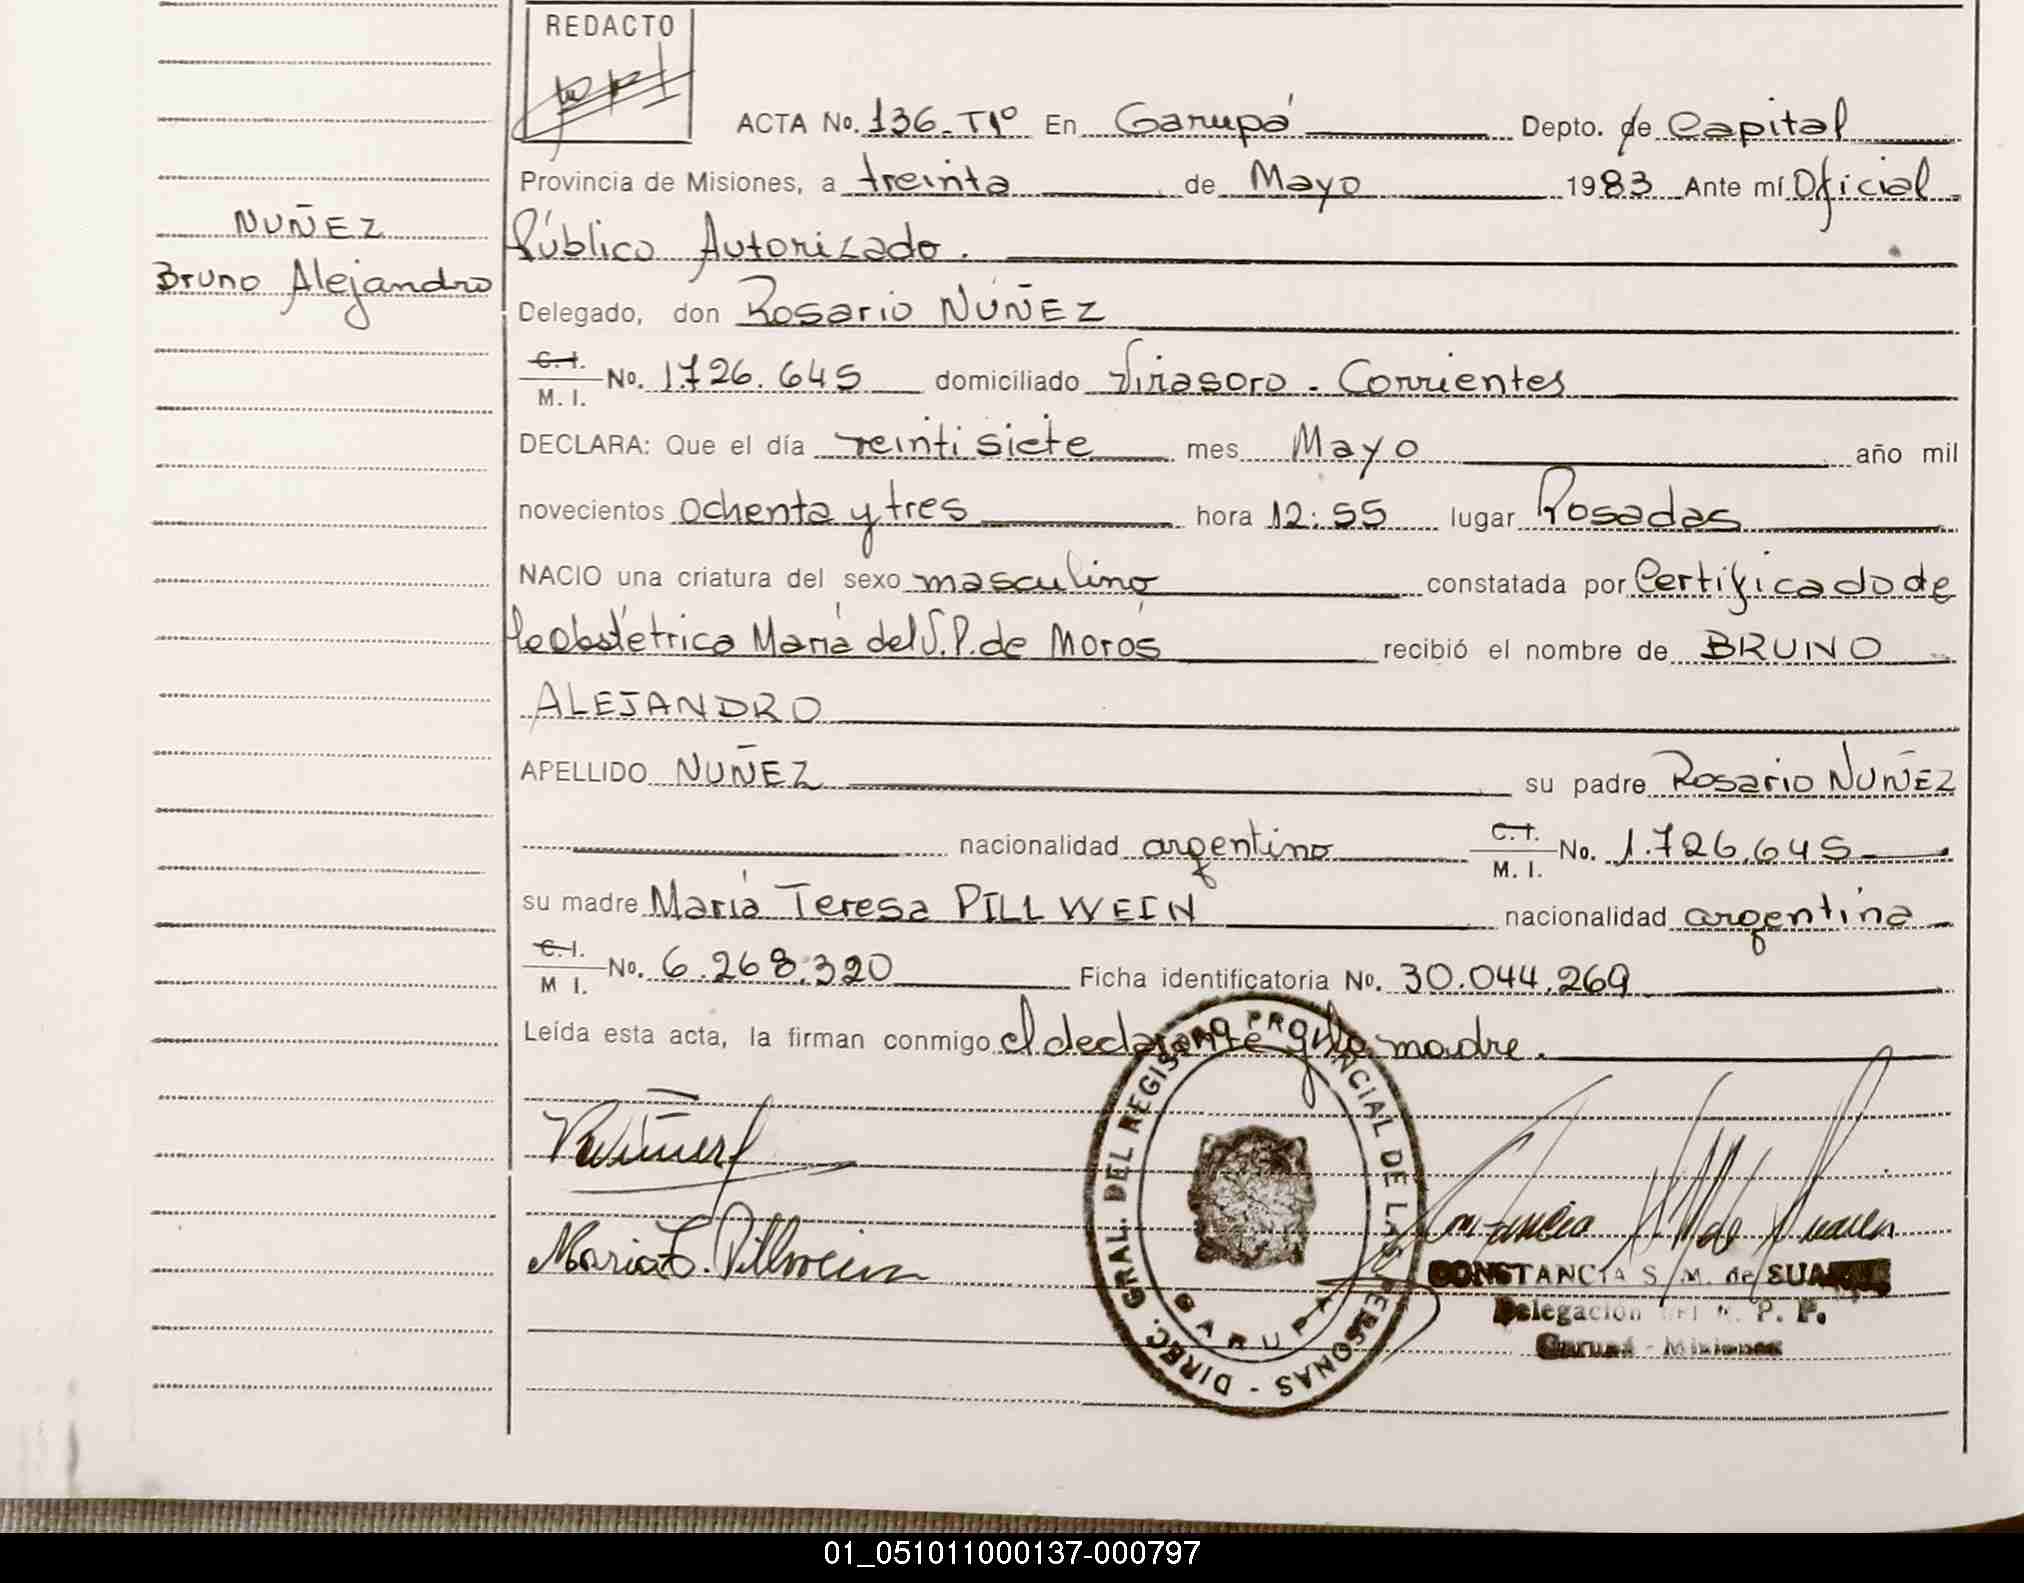 REDACTO
ACTA No. 136-T1º En Garupá Depto. de Capital
Provincia de Misiones, a treinta de Mayo 1983 Ante mí Oficial
NUÑEZ
Público Autorizado.
Bruno Alejandro
Delegado, don Rosario NÚÑEZ
C.I. M. I. No. 1.726.645 domiciliado Virasoro - Corrientes
DECLARA: Que el día veintisiete mes Mayo año mil
novecientos ochenta y tres hora 12:55 lugar Posadas
NACIO una criatura del sexo masculino constatada por Certificado de
la Obstétrica María del S.P. de Morós recibió el nombre de BRUNO
ALEJANDRO
APELLIDO NUÑEZ su padre Rosario NUÑEZ
nacionalidad argentino C.I. M. I. No. 1.726.645
su madre María Teresa PILLWEIN nacionalidad argentina
C.I. M I. No. 6.268.320 Ficha identificatoria No. 30.044.269
Leída esta acta, la firman conmigo el declarante y la madre.
DIREC. GRAL. DEL REGISTRO PROVINCIAL DE LAS PERSONAS -
GARUPA
Maria T. Pillwein
CONSTANCIA S. M. de SUAREZ
Delegación P. P.
Garupá - Misiones
01_051011000137-000797